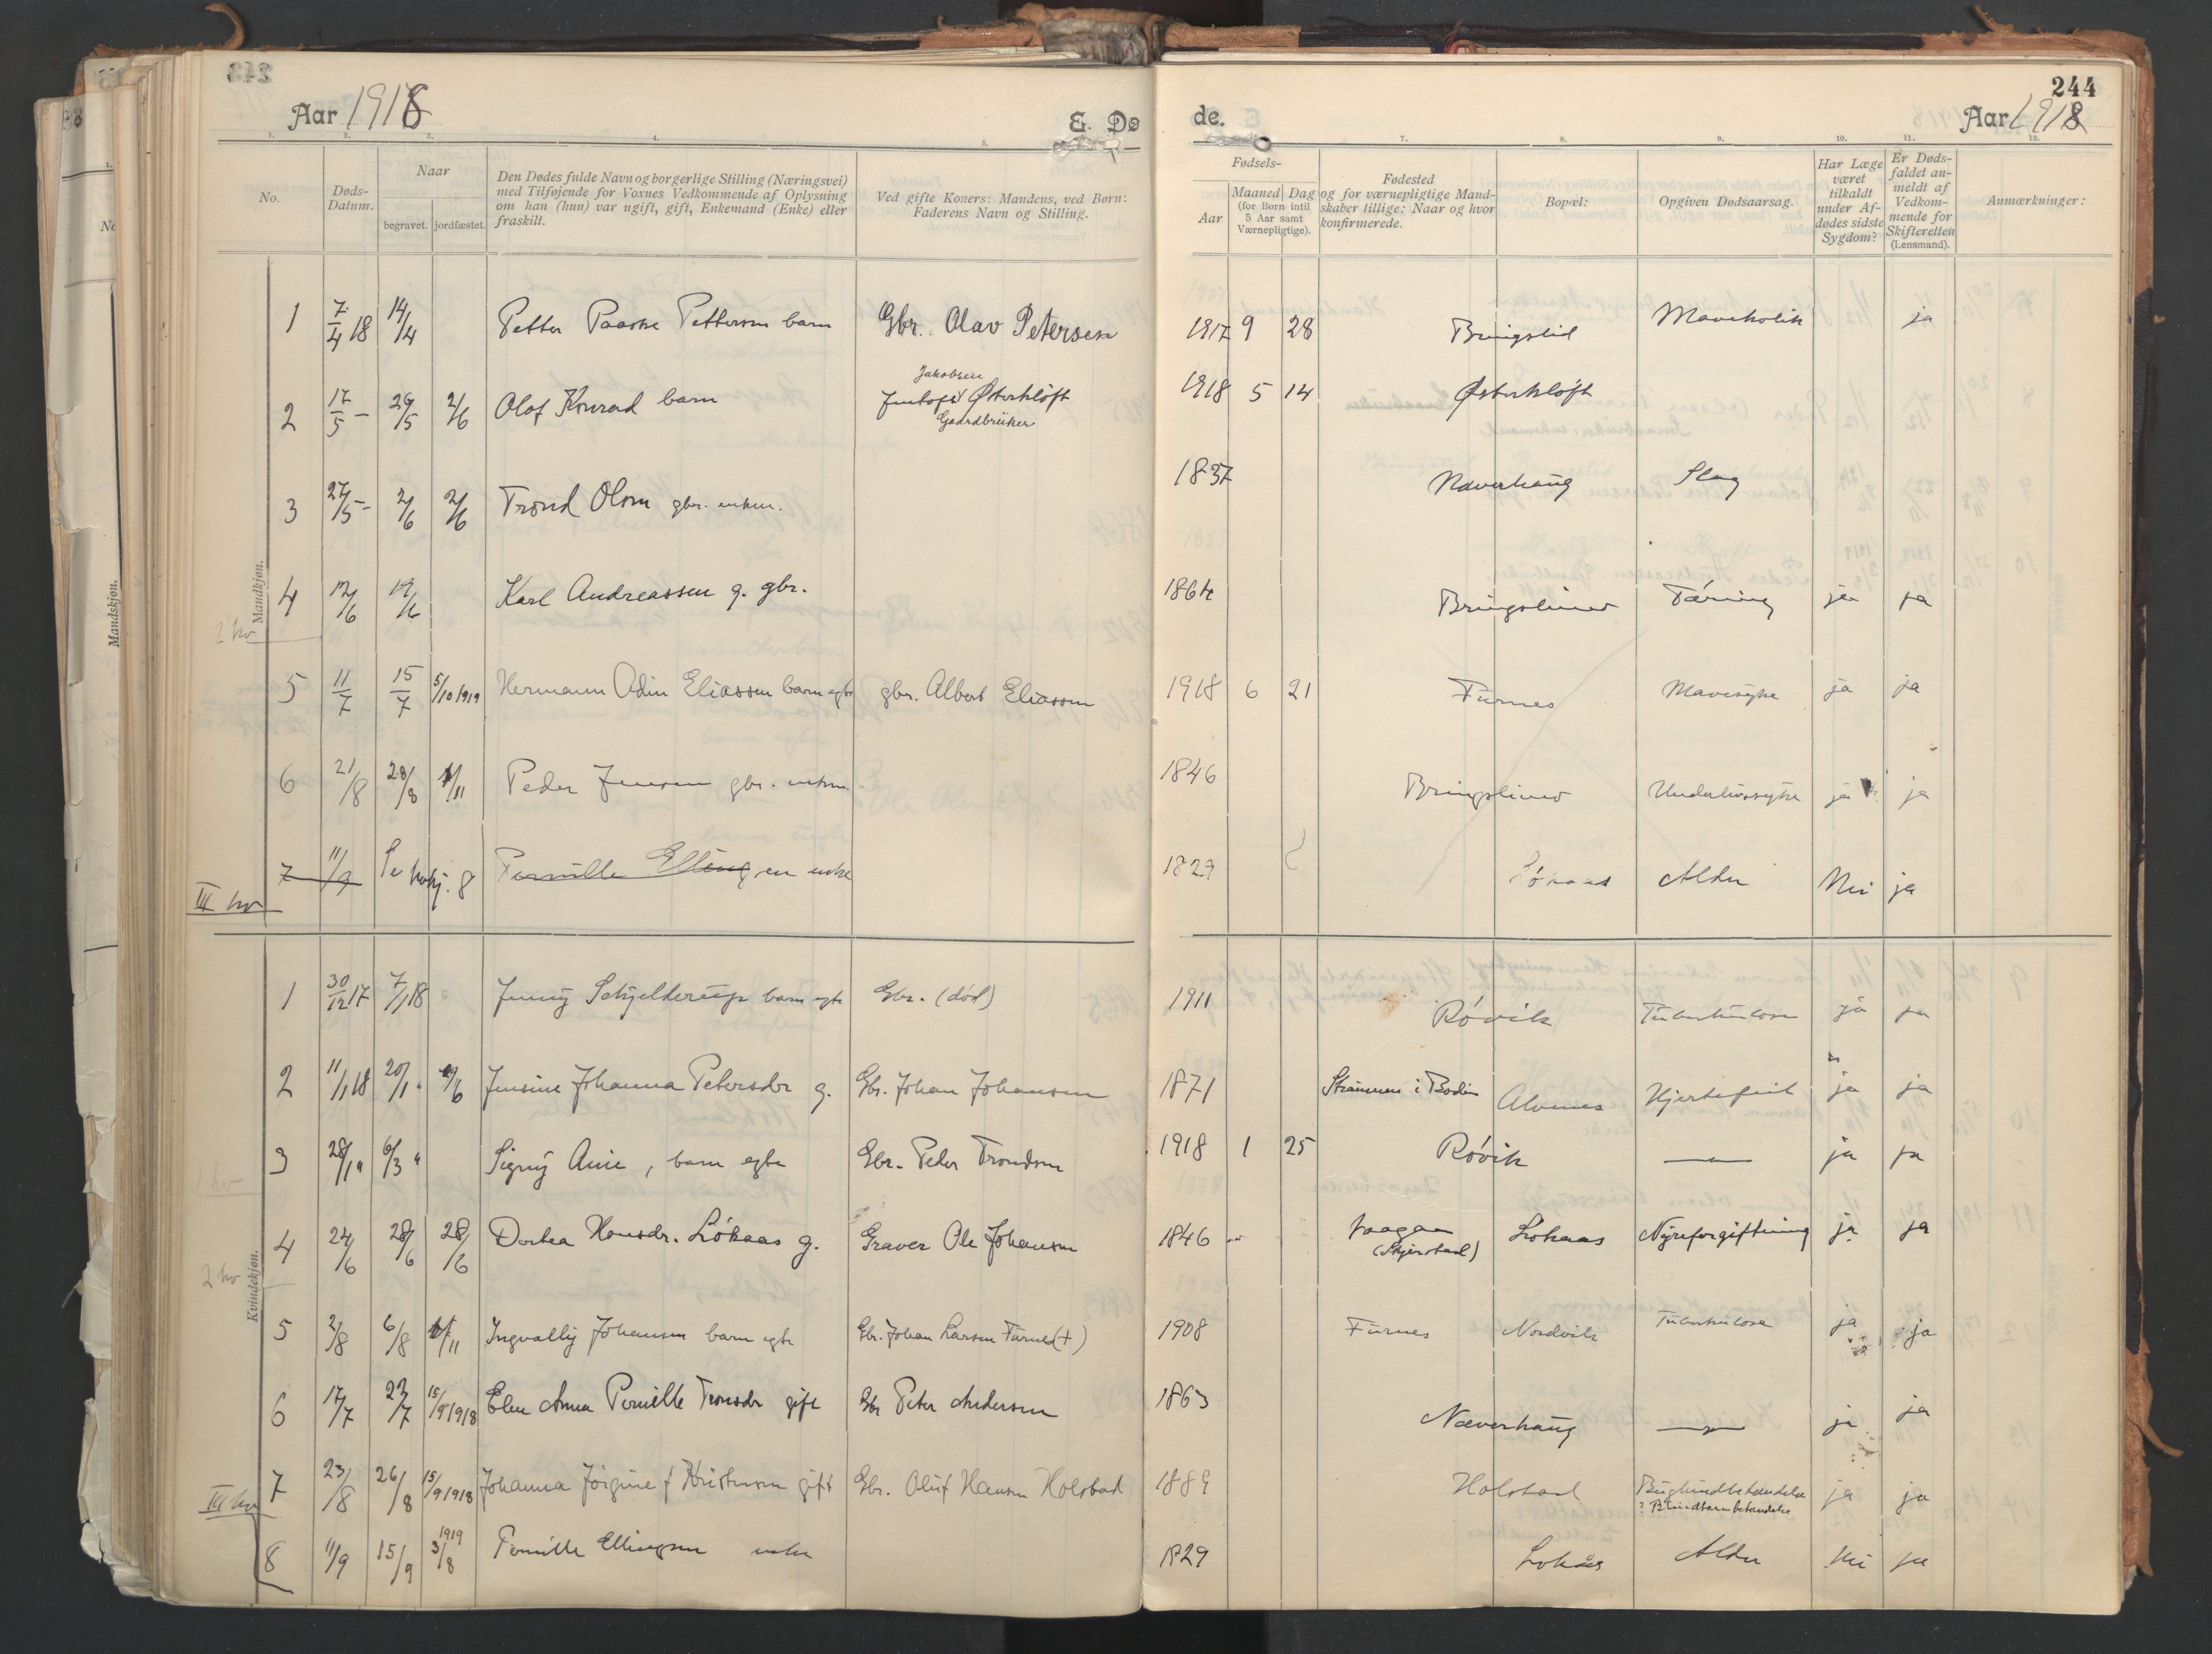 243
Aar 1918
E. Dø
de.
244
Aar 1918
1. 2. 3. 4. 5. 7. 8. 9. 10. 11. 12.
No.
Døds-Datum.
Naar
begravet. jordfæstet.
Den Dødes fulde Navn og borgerlige Stilling (Næringsvei)
med Tilføiende for Voxnes Vedkommende af Oplysning
om han (hun) var ugift, gift, Enkemand (Enke) eller
fraskilt.
Ved gifte Koner: Mandens, ved Børn:
Faderens Navn og Stilling.
Fødsels-
Aar
Maaned Dag
(for Børn intil
5 Aar samt
Værnepligtige).
Fødested
og for værnepligtige Mand-
skaber tillige: Naar og hvor
konfirmerede.
Bopæl:
Opgiven Dødsaarsag.
Har Læge
været
tilkaldt
under Af-
dødes sidste
Sygdom?
Er Døds-
faldet an-
meldt af
Vedkom-
mende for
Skifteretten
(Lensmand).
Anmærkninger:
Mandkjøn.
1 7/4 18 14/4 Petter Paaske Pettersen barn Gbr. Olav Petersen 1917 9 28 Bringslid Mavekolik ja
2 17/5 – 26/5 2/6 Olaf Konrad barn Jentoft Jakobsen Østerkløft Gaardbruker 1918 5 14 Østerkløft
3 27/5 – 2/6 2/6 Trond Olsen gbr. enkem. 1837 Næverhaug Slag
4 12/6 19/6 Karl Andreassen g. gbr. 1864 Bringslimo Tæring ja ja
2 kv
5 11/7 15/7 5/10 1919 Hermann Odin Eliassen barn egte gbr. Albert Eliassen 1918 6 21 Furnes Mavesyke ja ja
6 21/8 28/8 1/11 Peder Jensen gbr. enkem. 1846 Bringslimo Underlivssyke ja ja
7 11/9 Se kvkj. 8 Pernille Ellingsen enke 1829 Løkaas Alder Nei ja
III kv
Kvindekjøn.
1 30/12 17 7/1 18 Jenny Schjelderup barn egte Gbr. (død) 1911 Røvik Tuberkulose ja ja
2 11/1 18 20/1 " /6 Jensine Johanna Petersdtr g. Gbr. Johan Johansen 1871 Straumen i Bodin Alvenes Hjertefeil ja ja
3 28/1 " 6/3 " Signy Anie, barn egte Gbr. Peder Trondsen 1918 1 25 Røvik —"— ja ja
1 kv
4 24/6 28/6 28/6 Dortea Hansdr. Løkaas g. Graver Ole Johansen 1846 Vaagan (Skjerstad) Løkaas Nyreforgiftning ja ja
2 kv
5 2/8 6/8 1/11 Ingvally Johansen barn egte Gbr. Johan Larsen Furnes (+) 1908 Furnes Nordvik Tuberkulose ja ja
6 17/7 22/7 15/9 1918 Elen Anna Pernille Tronsdr gift Gbr Peter Andersen 1863 Næverhaug —"— ja ja
7 23/8 26/8 15/9 1918 Johanna Jørgine f Kristensen gift Gbr. Oluf Hansen Holstad 1889 Holstad ? Blindtarmbetændelse ja ja
III kv
8 11/9 15/9 3/8 1919 Pernille Ellingsen enke 1829 Løkås Alder Nei ja
Mandskjøn.